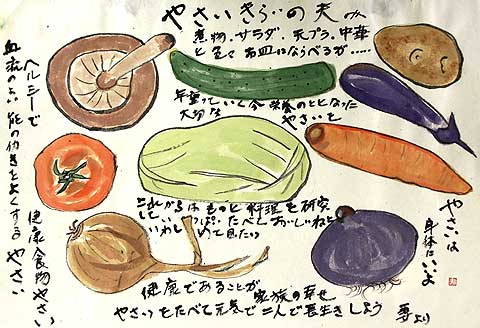 やさいきらいの夫へ
煮物、サラダ、天プラ、中華
と色々お皿にならべるが.....
年重っていく今栄養のもとになった
大切な
やさいを
これからはもっと料理を研究
していっぱいたべておいしいねと
いわしめて見たい
やさいは
身体にいいよ
ヘルシーで
血液の 脳の働きをよくするやさい
健康食物やさい
健康であることが
家族の幸せ
やさいをたべて元気で二人で長生きしよう
妻より